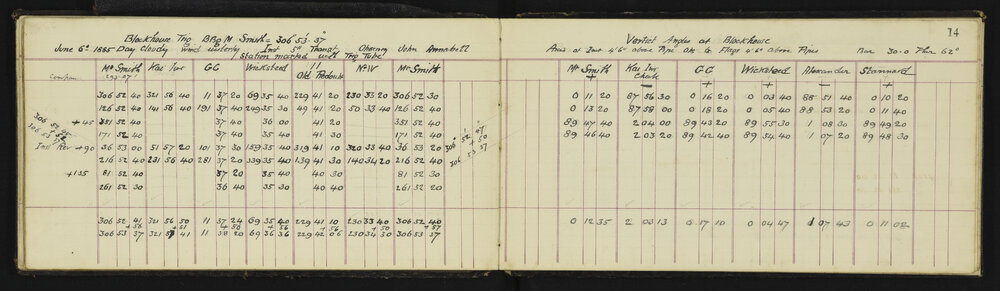 Blockhouse Trig BRg M. Smith = 306° 53' 37"
June 6th 1885 Day Cloudy wind westerly Inst 5" Transit Observ John Annabell
Station marked with Trig Tube
Mt Smith Kai Iwi GG Wicksteed 11 Old Redoubt No IV Mt Smith
306 52 40 321 56 40 11 37 20 69 35 40 229 41 20 230 33 20 306 52 30
126 52 40 141 56 40 191 37 40 249 35 30 49 41 20 50 33 40 126 52 40
+45 351 52 40 37 40 36 00 41 20 351 52 40
171 52 40 37 40 35 40 41 30 171 52 40
Inst Rev +90 36 53 00 51 57 20 101 37 30 159 35 40 319 41 10 320 33 40 36 53 20
216 52 40 231 56 40 281 37 20 339 35 40 139 41 30 140 34 20 216 52 40
+135 81 52 40 37 20 35 40 40 30 81 52 30
261 52 30 36 40 35 30 40 40 261 52 20
306 52 41 321 56 50 11 37 24 69 35 40 229 41 10 230 33 40 306 52 40
+56 +51 +56 +56 +56 +50 +57
306 53 37 321 57 41 11 38 20 69 36 36 229 42 06 230 34 30 306 53 37
306 52 47
+50
306 53 37
14
Vertical Angles at Blockhouse
Axis of Inst 4'6" above Pipe Obs to Flags 4'6" above Pipes Bar 30.0 Ther 62°
Mt Smith Kai Iwi GG Wicksteed Alexander Stannard
0 11 20 87 56 30 0 16 20 0 03 40 88 51 40 0 10 20
0 13 20 87 58 00 0 18 20 0 05 40 88 53 20 0 11 40
89 47 40 2 04 00 89 43 20 89 55 30 1 08 30 89 49 20
89 46 40 2 03 20 89 42 40 89 54 40 1 07 20 89 48 30
0 12 35 2 03 13 0 17 10 0 04 47 1 07 43 0 11 02